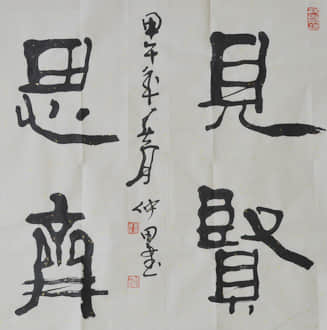 見賢
思齊
甲午年六月
仲田書